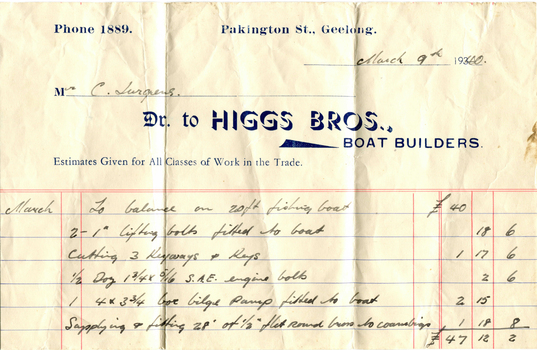 Phone 1889. Pakington St., Geelong.
March 9th 1940.
Mr C. Jurgens.
Dr. to HIGGS BROS.,
BOAT BUILDERS.
Estimates Given for All Classes of Work in the Trade.
March To balance on 20ft fishing boat £ 40
2 - 1" lifting bolts fitted to boat 18 6
Cutting 3 Keyways & Keys 1 17 6
1/2 Doz 1 3/4 x 5/16 S.A.E. engine bolts 2 6
1 4 x 3 3/4 bilge pump fitted to boat 2 15
Supplying & fitting 28' of 1/2" flat round brass to coamings 1 18 8
£ 47 12 2